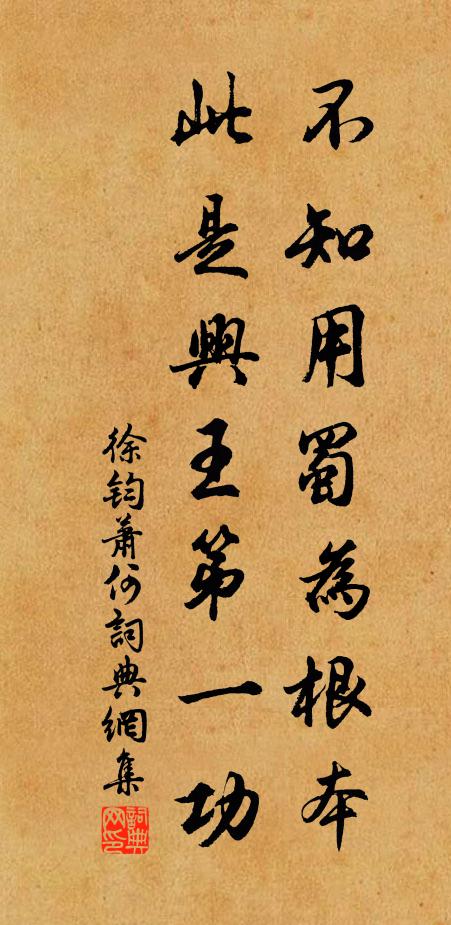 不知用蜀為根本
此是興王第一功
徐鈞蕭何詞典網集
詞典網印